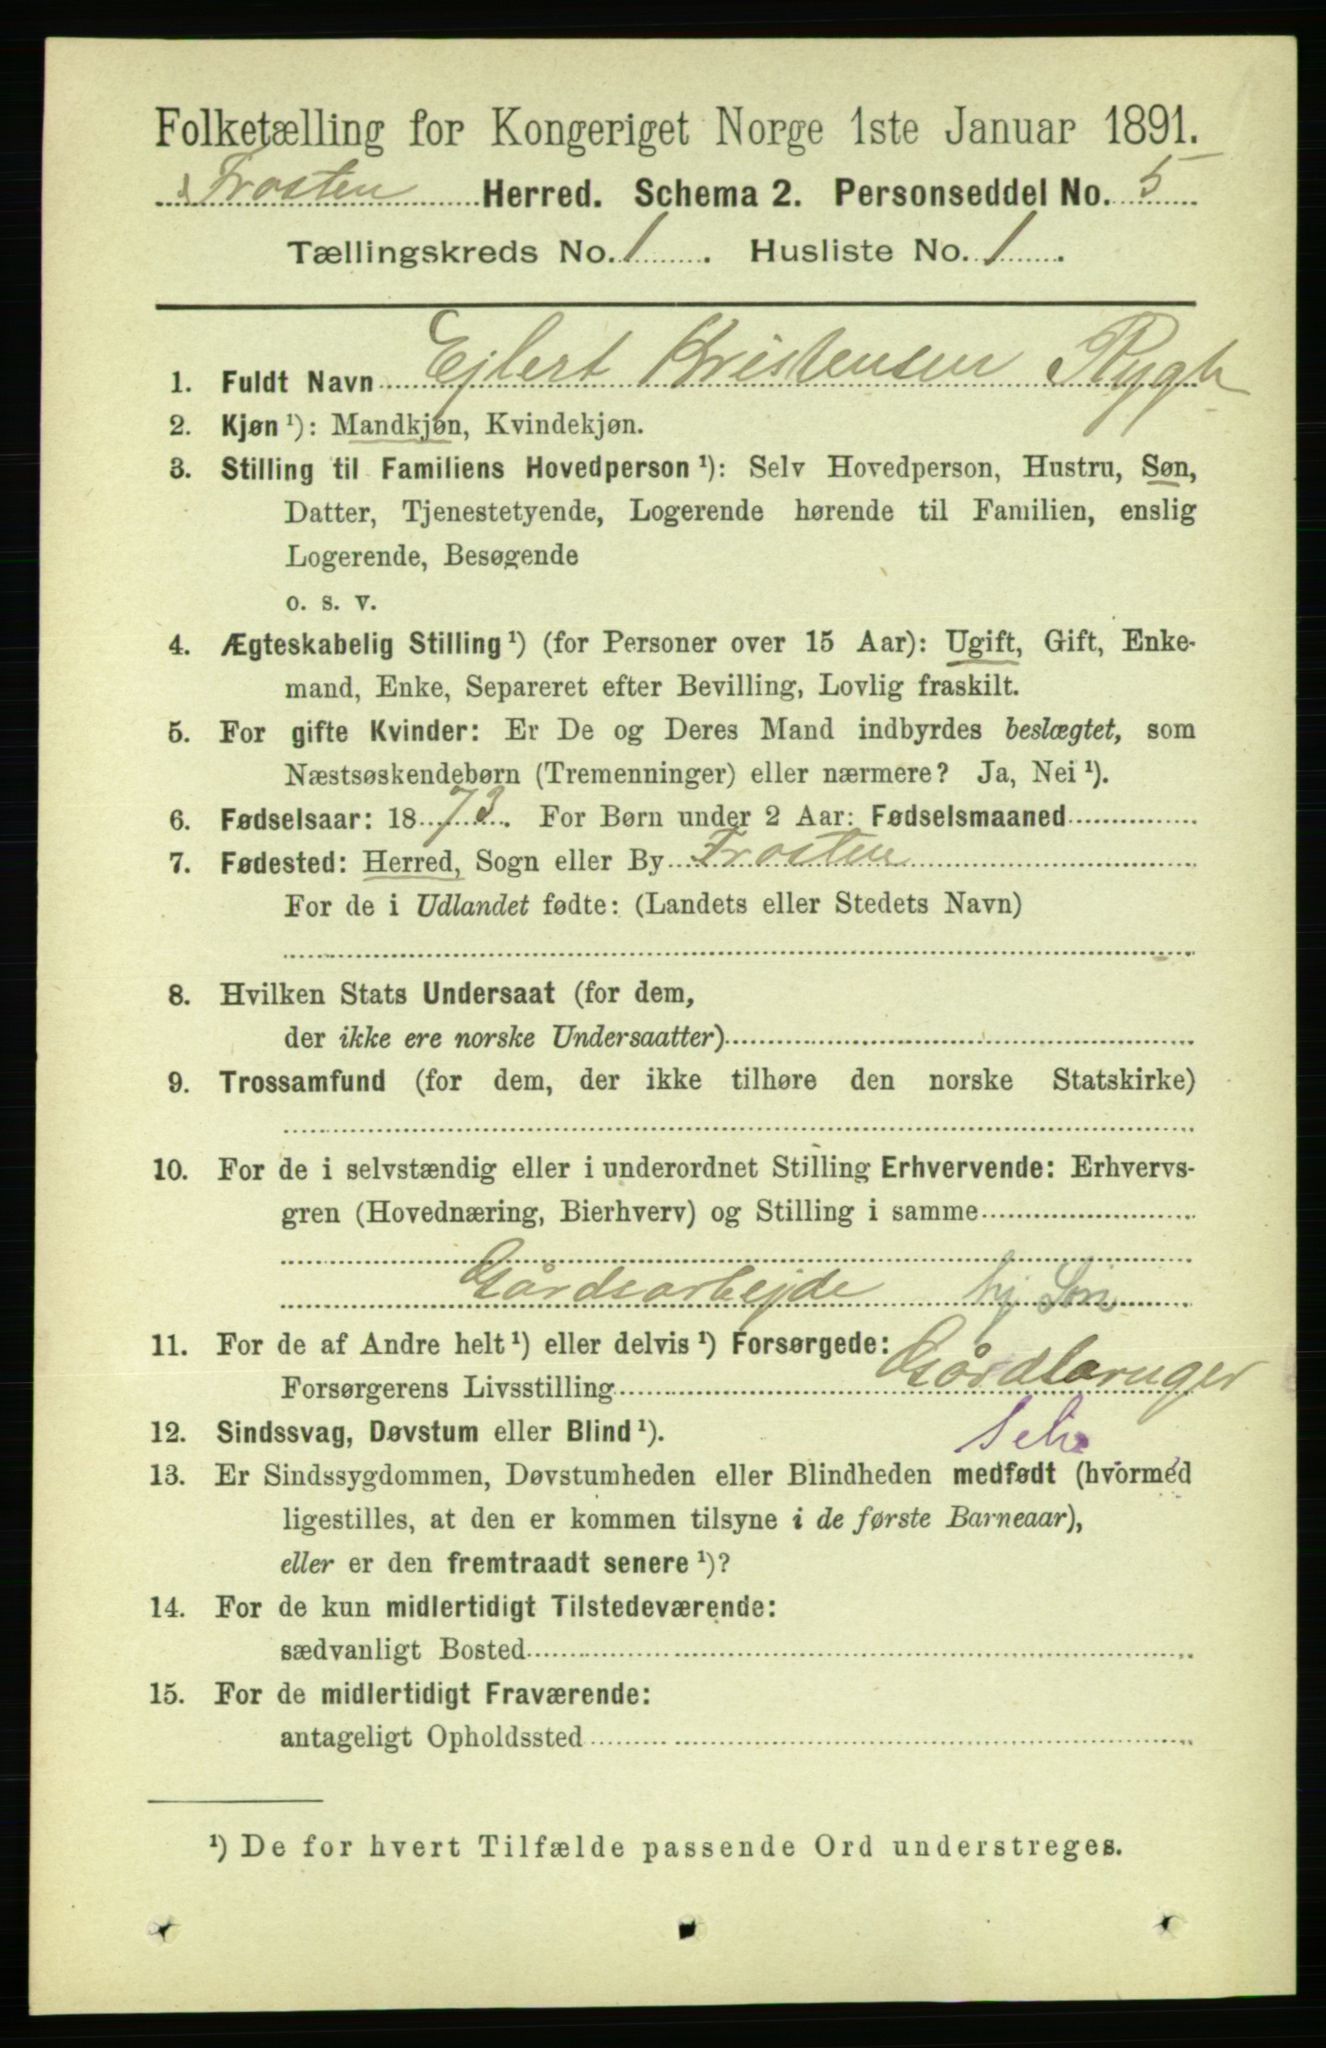 Folketælling for Kongeriget Norge 1ste Januar 1891.
Frosten Herred. Schema 2. Personseddel No. 5
Tællingskreds No. 1. Husliste No. 1.
1. Fuldt Navn Ejlert Kristensen Rygh
2. Kjøn ¹): Mandkjøn, Kvindekjøn.
3. Stilling til Familiens Hovedperson ¹): Selv Hovedperson, Hustru, Søn,
Datter, Tjenestetyende, Logerende hørende til Familien, enslig
Logerende, Besøgende
o. s. v.
4. Ægteskabelig Stilling ¹) (for Personer over 15 Aar): Ugift, Gift, Enke-
mand, Enke, Separeret efter Bevilling, Lovlig fraskilt.
5. For gifte Kvinder: Er De og Deres Mand indbyrdes beslægtet, som
Næstsøskendebørn (Tremenninger) eller nærmere? Ja, Nei ¹).
6. Fødselsaar: 1873. For Børn under 2 Aar: Fødselsmaaned
7. Fødested: Herred, Sogn eller By Frosten
For de i Udlandet fødte: (Landets eller Stedets Navn)
8. Hvilken Stats Undersaat (for dem,
der ikke ere norske Undersaatter)
9. Trossamfund (for dem, der ikke tilhøre den norske Statskirke)
10. For de i selvstændig eller i underordnet Stilling Erhvervende: Erhvervs-
gren (Hovednæring, Bierhverv) og Stilling i samme
Gårdsarbejde hj Søn
11. For de af Andre helt ¹) eller delvis ¹) Forsørgede:
Forsørgerens Livsstilling Gårdbruger
12. Sindssvag, Døvstum eller Blind ¹).
13. Er Sindssygdommen, Døvstumheden eller Blindheden medfødt (hvormed
ligestilles, at den er kommen tilsyne i de første Barneaar),
eller er den fremtraadt senere ¹)?
14. For de kun midlertidigt Tilstedeværende:
sædvanligt Bosted
15. For de midlertidigt Fraværende:
antageligt Opholdssted
¹) De for hvert Tilfælde passende Ord understreges.